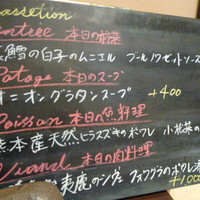 Entrée 本日の前菜
真鱈の白子のムニエル ブールノワゼットソース
Potage 本日のスープ
オニオングラタンスープ +400
Poisson 本日の魚料理
熊本産天然ヒラスズキのポワレ 小松菜の
Viand 本日の肉料理
夷鹿のシヴェ フォアグラのポワレ添
+100